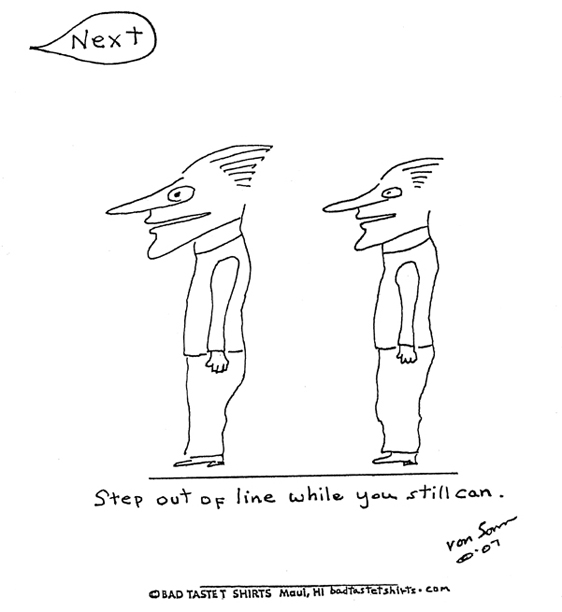 Next
Step out of line while you still can.
von Sonn
©-07
©BAD TASTE T SHIRTS Maui, HI badtastetshirts.com